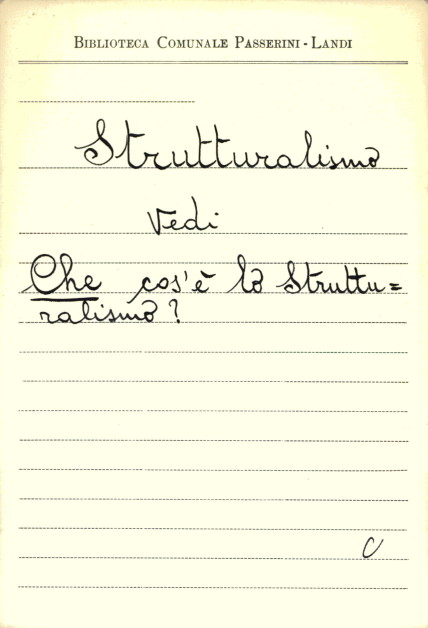 BIBLIOTECA COMUNALE PASSERINI - LANDI
Strutturalismo
Vedi
Che cos'è lo Struttu=
ralismo?
C